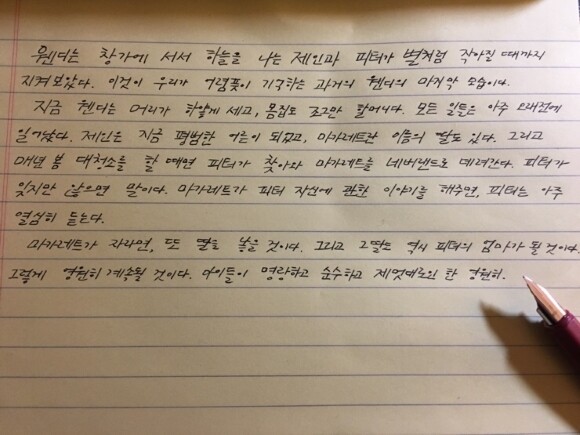 웬디는 창가에 서서 하늘을 나는 제인과 피터가 별처럼 작아질 때까지
지켜보았다. 이것이 우리가 어렴풋이 기억하는 과거의 웬디의 마지막 모습이다.
지금 웬디는 머리가 하얗게 세고, 몸집도 조그만 할머니다. 모든 일들은 아주 오래전에
일어났다. 제인은 지금 평범한 어른이 되었고, 마가레트란 이름의 딸도 있다. 그리고
매년 봄 대청소를 할 때면 피터가 찾아와 마가레트를 네버랜드로 데려간다. 피터가
잊지만 않으면 말이다. 마가레트가 피터 자신에 관한 이야기를 해주면, 피터는 아주
열심히 듣는다.
마가레트가 자라면, 또 딸을 낳을 것이다. 그리고 그 딸은 역시 피터의 엄마가 될 것이다.
그렇게 영원히 계속될 것이다. 아이들이 명랑하고 순수하고 제멋대로인 한 영원히.